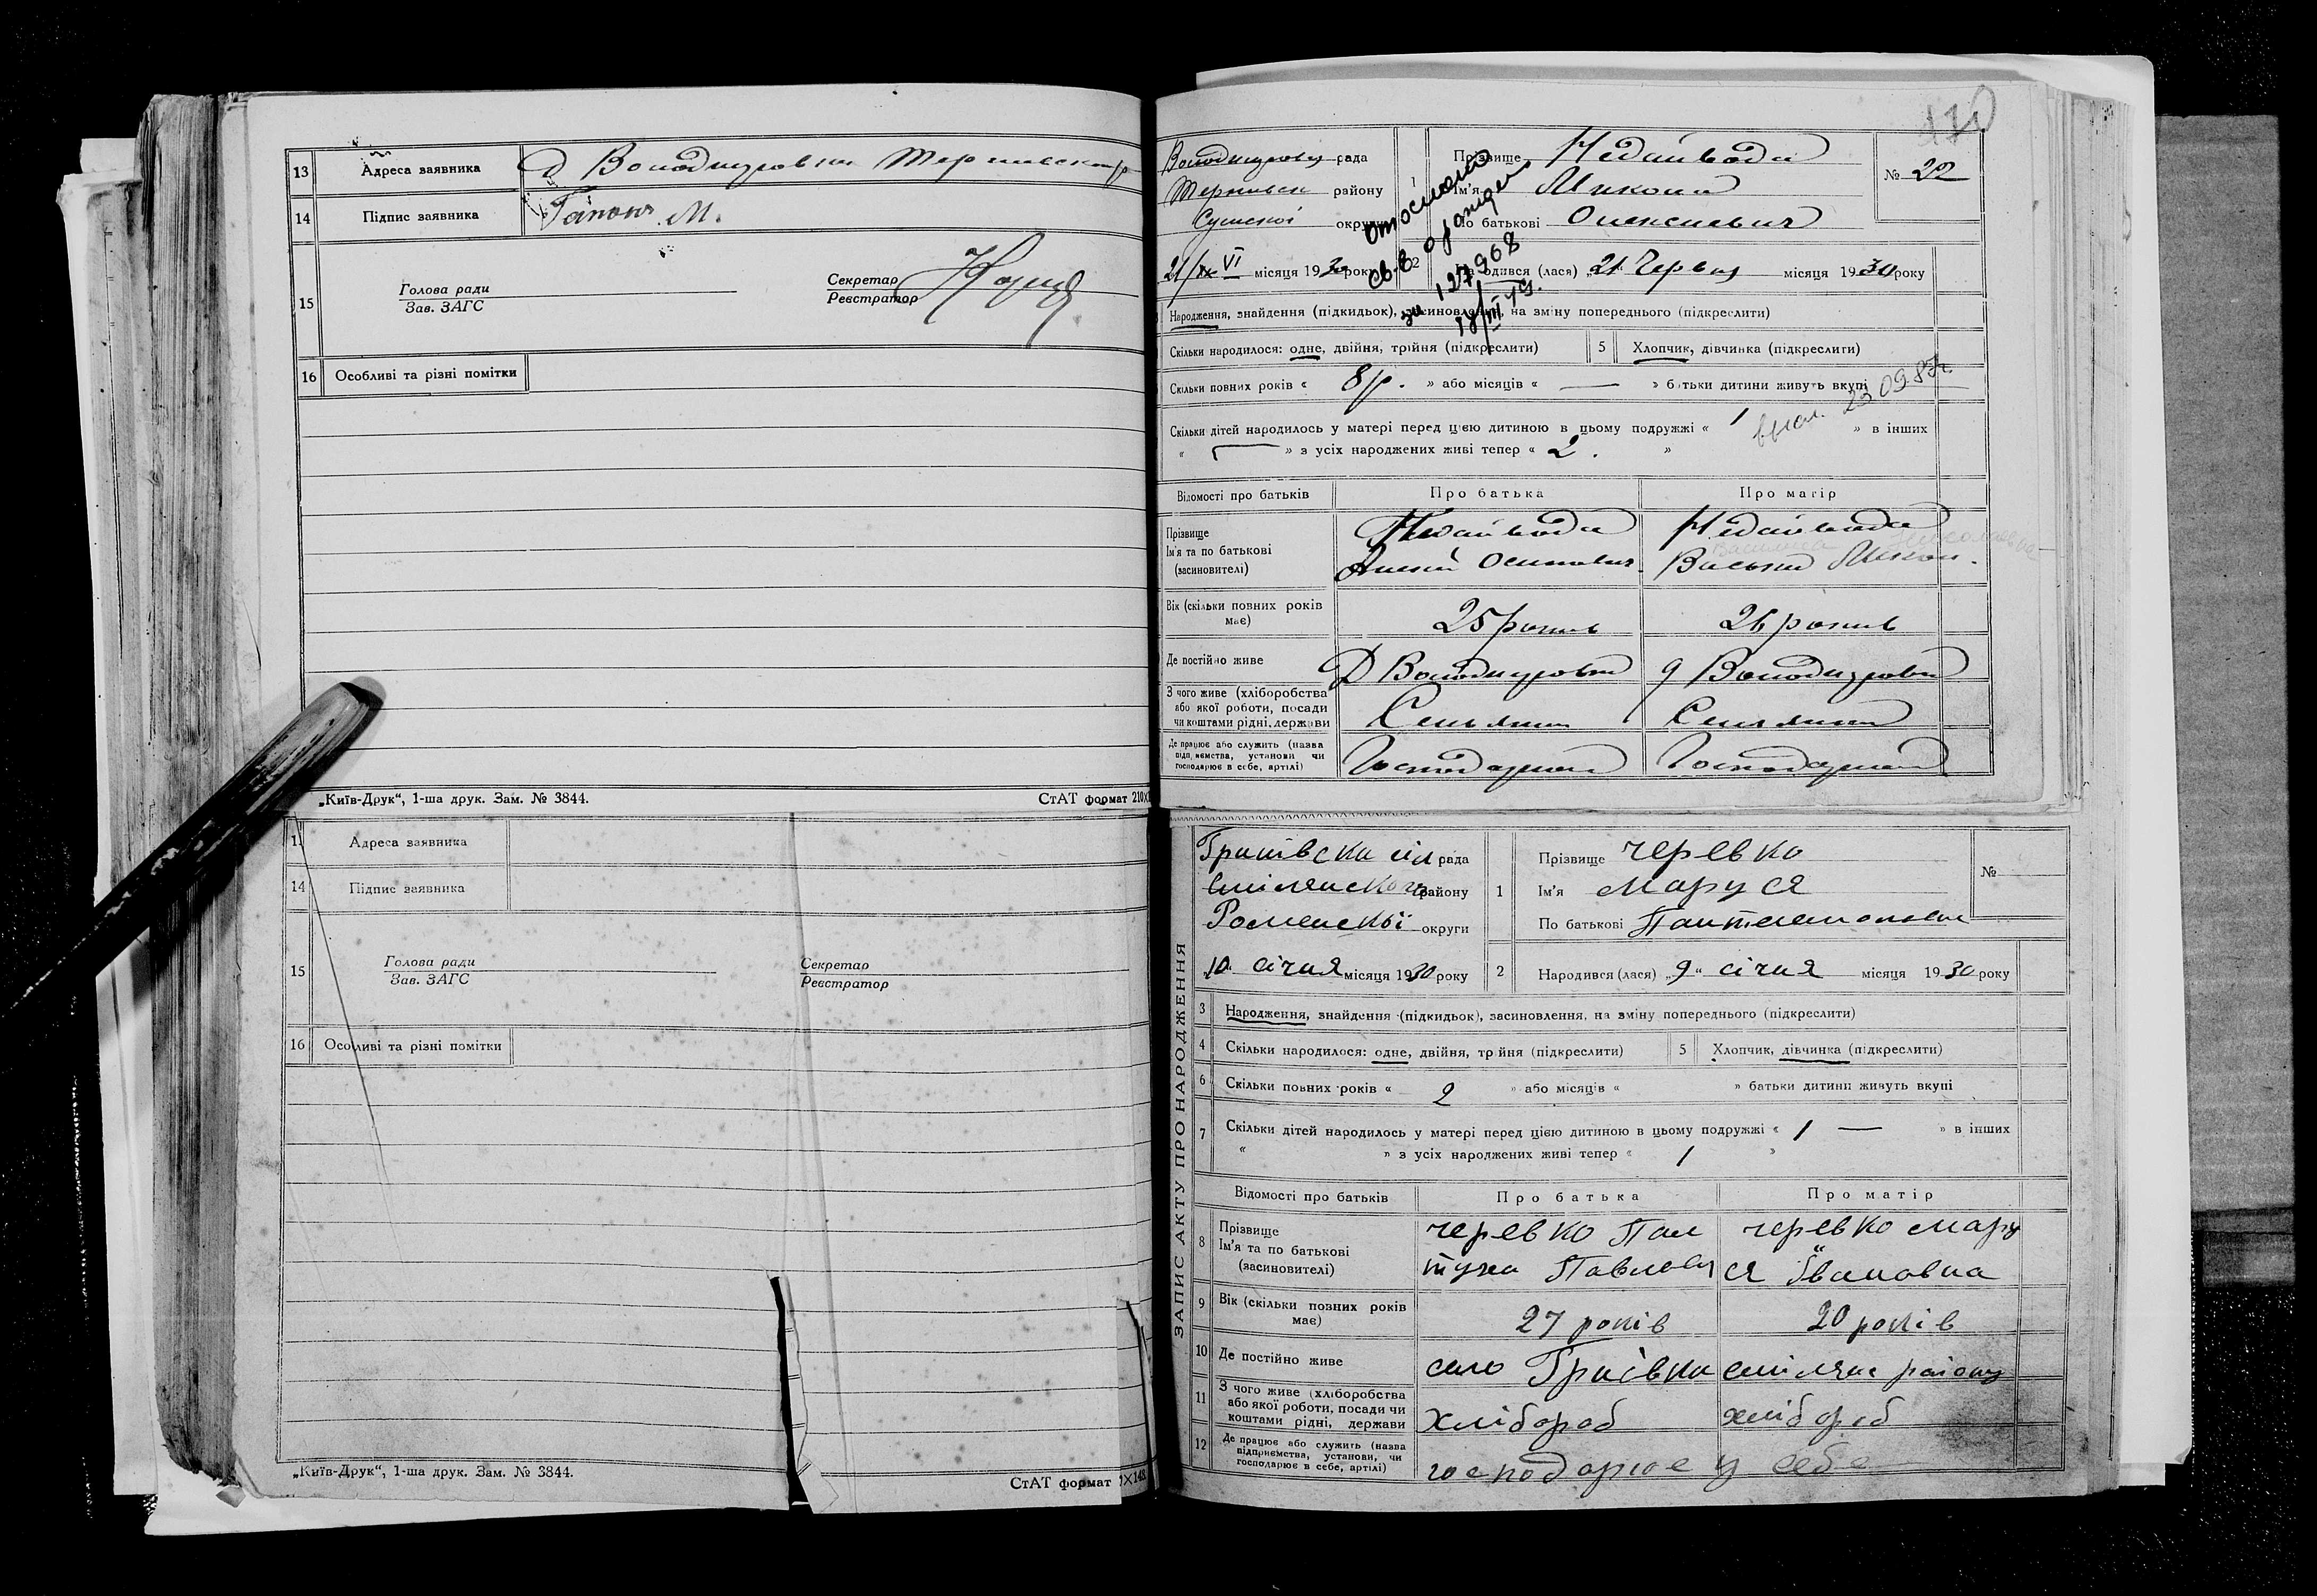 13 Адреса заявника Д Володмуровка
14 Підпис заявника Гапон М.
15 Голова ради
Зав. ЗАГС
Секретар
Реєстратор
16 Особливі та різні помітки
„Київ-Друк“, 1-ша друк. Зам. № 3844.
СтАТ формат 210×
13 Адреса заявника
14 Підпис заявника
15 Голова ради
Зав. ЗАГС
Секретар
Реєстратор
16 Особливі та різні помітки
„Київ-Друк“, 1-ша друк. Зам. № 3844.
СтАТ формат
170
рада
району
Сумської округи
1 Прізвище Недайвода
Ім'я Микола
По батькові Олексиевич
№ 22
21/VI місяця 1930 року
2 Народився (лася) „21“ Червня місяця 1930 року
за 127968
18/III 49.
Народження, знайдення (підкидьок), засиновлення, на зміну попереднього (підкреслити)
Скільки народилося: одне, двійня, трійня (підкреслити)
5 Хлопчик, дівчинка (підкреслити)
Скільки повних років « 8 р. » або місяців « — » батьки дитини живуть вкупі
23.09.87г.
Скільки дітей народилось у матері перед цією дитиною в цьому подружжі « 1 » в інших
« — » з усіх народжених живі тепер « 2. »
Відомості про батьків
Про батька
Про матір
Прізвище
Ім'я та по батькові
(засиновителі)
Недайвода
Осипович.
Недайвода
Васька Микол.
Вік (скільки повних років
має)
25 років
26 років
Де постійно живе
Д Володмуровка
д Володмуровка
З чого живе (хліборобства
або якої роботи, посади
чи коштами рідні, держави
Сельянин
Сельянка
Де працює або служить (назва
підприємства, установи чи
господарює в себе, артілі)
ЗАПИС АКТУ ПРО НАРОДЖЕННЯ
сіл рада
району
Роменської округи
1 Прізвище черевко
Ім'я Маруся
По батькові Пантелемоновна
№
„10“ січня місяця 1930 року
2 Народився (лася) „9“ січня місяця 1930 року
3 Народження, знайдення (підкидьок), засиновлення, на зміну попереднього (підкреслити)
4 Скільки народилося: одне, двійня, трійня (підкреслити)
5 Хлопчик, дівчинка (підкреслити)
6 Скільки повних років « 2 » або місяців « » батьки дитини живуть вкупі
7 Скільки дітей народилось у матері перед цією дитиною в цьому подружжі « 1 — » в інших
« » з усіх народжених живі тепер « 1 »
Відомості про батьків
Про батька
Про матір
8 Прізвище
Ім'я та по батькові
(засиновителі)
черевко Пан
Павлович
черевко Мару
ся Івановна
9 Вік (скільки повних років
має)
27 років
20 років
10 Де постійно живе
село
району
11 З чого живе (хліборобства
або якої роботи, посади чи
коштами рідні, держави
Хлібороб
хлібороб
12 Де працює або служить (назва
підприємства, установи, чи
господарює в себе, артілі)
господарює у себе